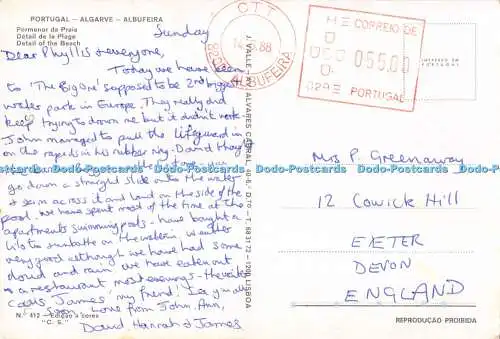 PORTUGAL - ALGARVE - ALBUFEIRA
Pormenor da Praia
Détail de la Plage
Detail of the Beach
Sunday
Dear Phyllis & everyone,
Today we have been
to 'The Big One' supposed to be 2nd biggest
water park in Europe. They really did
keep trying to down me but it didn't work.
John managed to pull the lifeguard in
on the rapids in his rubber ring. David
go down a straight slide onto the water
& skim across it and land on the side of the
pool. We have spent most of the time at the
apartments swimming pools - have bought a
lilo to sunbathe on the water in. Weather
very good although we have had some
cloud and rain. We have eaten out
in a restaurant, most evenings - the waiter
calls James 'my friend'. See you all
soon. Love from John, Ann,
David, Hannah & James
N.º 412 - Edição a cores
"C. S."
J. VALLE
ALVARES CABRAL
1200 LISBOA
CTT
88
8200 ALBUFEIRA
CORREIO DE
055,00
PORTUGAL
IMPRESSO EM
PORTUGAL
Mrs P. Greenaway
12 Cowick Hill
EXETER
DEVON
ENGLAND
REPRODUÇÃO PROIBIDA
Dodo-Postcards Dodo-Postcards Dodo-Postcards Dodo-Postcards